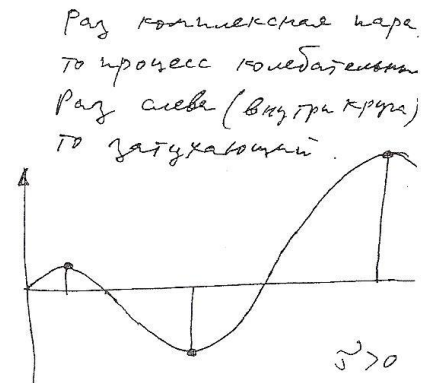 Раз комплексная пара
то процесс колебательны
Раз слева (внутри круга)
то затухающий.
> 0